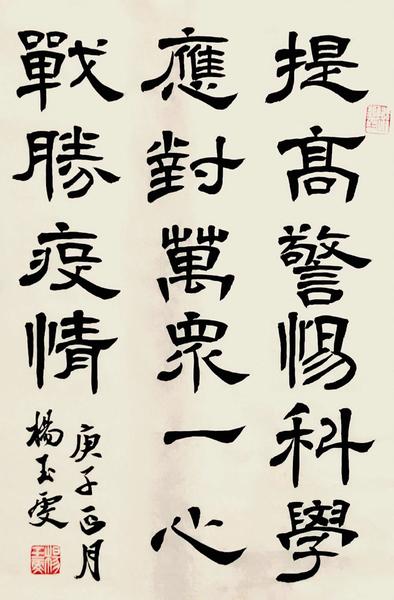 提高警惕科學
應對萬眾一心
戰勝疫情
庚子正月
楊玉雯